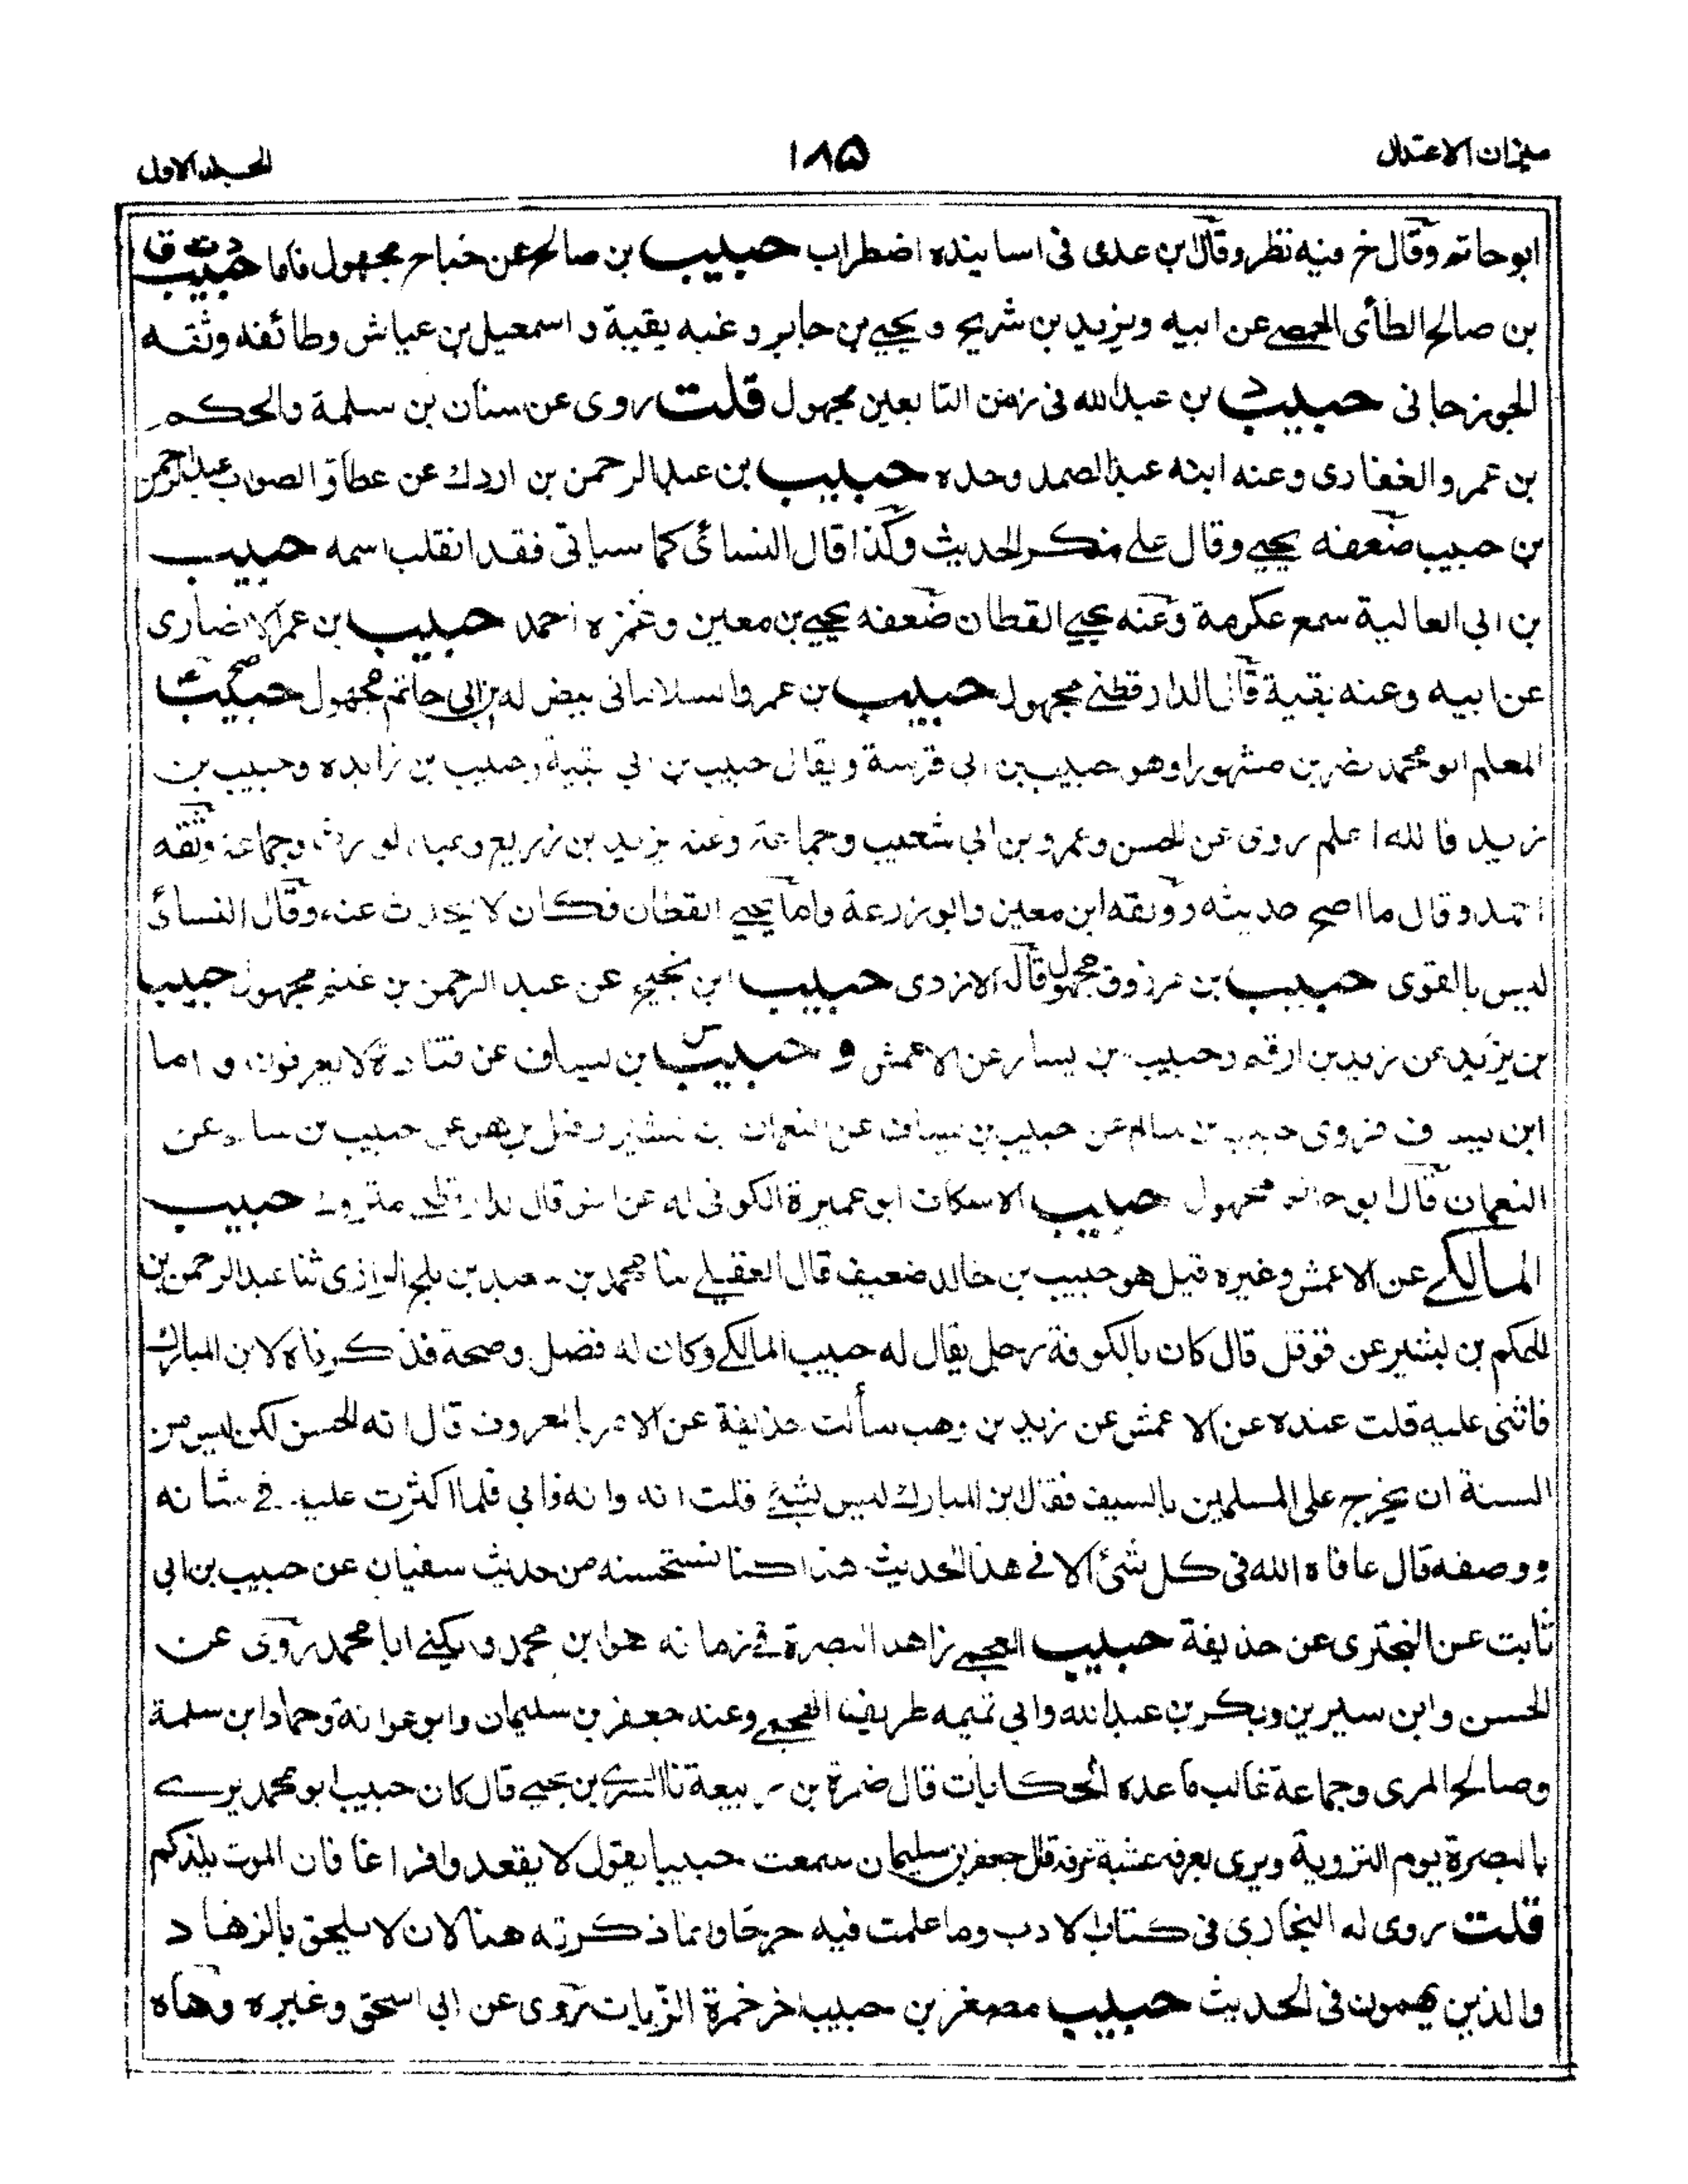 ميزان الاعتدال
۱۸۵
المجلد الاول
ابو حاتم وقال خ فيه نظر وقال ابن عدى فى اسانيده اضطراب حبيب بن صالح عن خباح مجهول فاما حبيب
بن صالح الطائى الحمصے عن ابيه ويزيد بن شريح ويحيے بن جابر وعنه بقية و اسمعيل بن عياش وطائفة وثقه
الجوزجانى حبيب بن عبدالله فى زمن التابعين مجهول قلت روى عن سنان بن سلمة والحكم
بن عمرو الغفارى وعنه ابنه عبدالصمد وحده حبيب بن عبدالرحمن بن اردك عن عطاء و الصواب عبدالرحمن
بن حبيب ضعفه يحيے وقال علے منكر الحديث وكذا قال النسائى كما سياتى فقد انقلب اسمه حبيب
بن ابى العالية سمع عكرمة وعنه يحيے القطان ضعفه يحيے بن معين وغمزه احمد حبيب بن عمر الانصارى
عن ابيه وعنه بقية قال الدارقطنے مجهول حبيب بن عمرو السلامانى بيض له ابن ابى حاتم مجهول حبيب
المعلم ابو محمد بصرى مشهور وهو حبيب بن ابى قريبة ويقال حبيب بن ابي بقية وحبيب بن زايده وحبيب بن
زيد فالله اعلم روى عن الحسن وعمرو بن ابى شعيب وجماعة وعنه يزيد بن زريع وعبد الوارث وجماعة وثقه
احمد وقال ما اصح حديثه ووثقه ابن معين وابو زرعة واما يحيے القطان فكان لا يحدث عنه وقال النسائى
ليس بالقوى حبيب بن مرزوق مجهول قاله الازدى حبيب ابن نجيح عن عبد الرحمن بن غنم مجهول حبيب
بن يزيد عن زيد بن ارقم وحبيب بن يسار عن الاعمش و حبيب بن يساف عن قتادة لا يعرفون و اما
ابن يساف فروى حبيب بن سالم عن حبيب بن يساف عن النعمان بن بشير وقيل بل هو عن حبيب بن سالم عن
النعمان قال ابو حاتم مجهول حبيب الاسكاف ابو عميرة الكوفى له عن انس قال الدارقطنے متروك حبيب
المالكے عن الاعمش وغيره قيل هو حبيب بن خالد ضعيف قال العقيلے ثنا محمد بن سعيد بن بلج الرازى ثنا عبدالرحمن بن
الحكم بن بشير عن نوفل قال كان بالكوفة رجل يقال له حبيب المالكے وكان له فضل وصحة فذكرناه لابن المبارك
فاثنى عليه قلت عنده عن الاعمش عن زيد بن وهب سألت حذيفة عن الامر بالمعروف قال انه لحسن لكن ليس من
السنة ان يخرج على المسلمين بالسيف فقال ابن المبارك ليس بشئے قلت انه وانه فابى فلما اكثرت عليه فے شانه
ووصفه قال عافاه الله فى كل شئ الا فے هذا الحديث هذا كنا نستحسنه من حديث سفيان عن حبيب بن ابى
ثابت عن البخترى عن حذيفة حبيب العجمے زاهد البصرة فے زمانه هو ابن محمد ويكنے ابا محمد روى عن
الحسن وابن سيرين وبكر بن عبدالله وابى تميمه طريف الهجيمے وعنه جعفر بن سليمان وابو عوانة وحماد ابن سلمة
وصالح المرى وجماعة غالب ما عنده الحكايات قال ضمرة بن ربيعة نا السرى بن يحيے قال كان حبيب ابو محمد يرے
بالبصرة يوم التروية ويرى بعرفة عشية عرفة قال جعفر بن سليمان سمعت حبيبا يقول لا يقعد وافراغا فان الموت يلذكم
قلت روى له البخارى فى كتاب الادب وما علمت فيه جرحا وانما ذكرته هنا لان لا يلحق بالزهاد
والذين يهمون فى الحديث حبيب مصغر بن حبيب اخر حمزة الزيات روى عن ابى اسحق وغيره وهاه